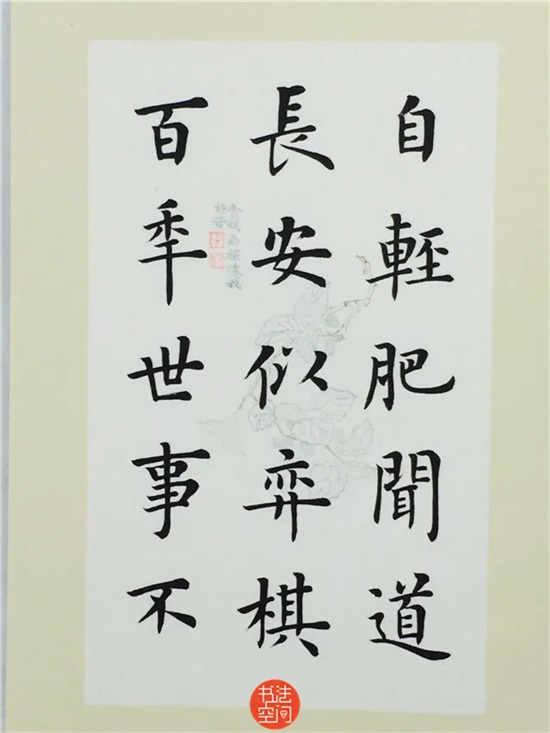 自輕肥聞道
長安似弈棋
百年世事不
书法
空间